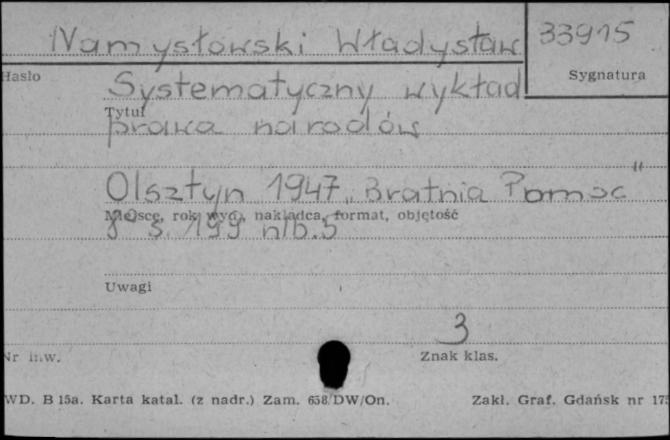 Namysłowski Władysław
33915
Hasło
Sygnatura
Systematyczny wykład
Tytuł
prawa narodów
Olsztyn 1947 „Bratnia Pomoc"
Miejsce, rok wyd., nakładca, format, objętość
8° s. 199 nlb. 5
Uwagi
3
Nr inw.
Znak klas.
WD. B 15a. Karta katal. (z nadr.) Zam. 658/DW/On.
Zakł. Graf. Gdańsk nr 175